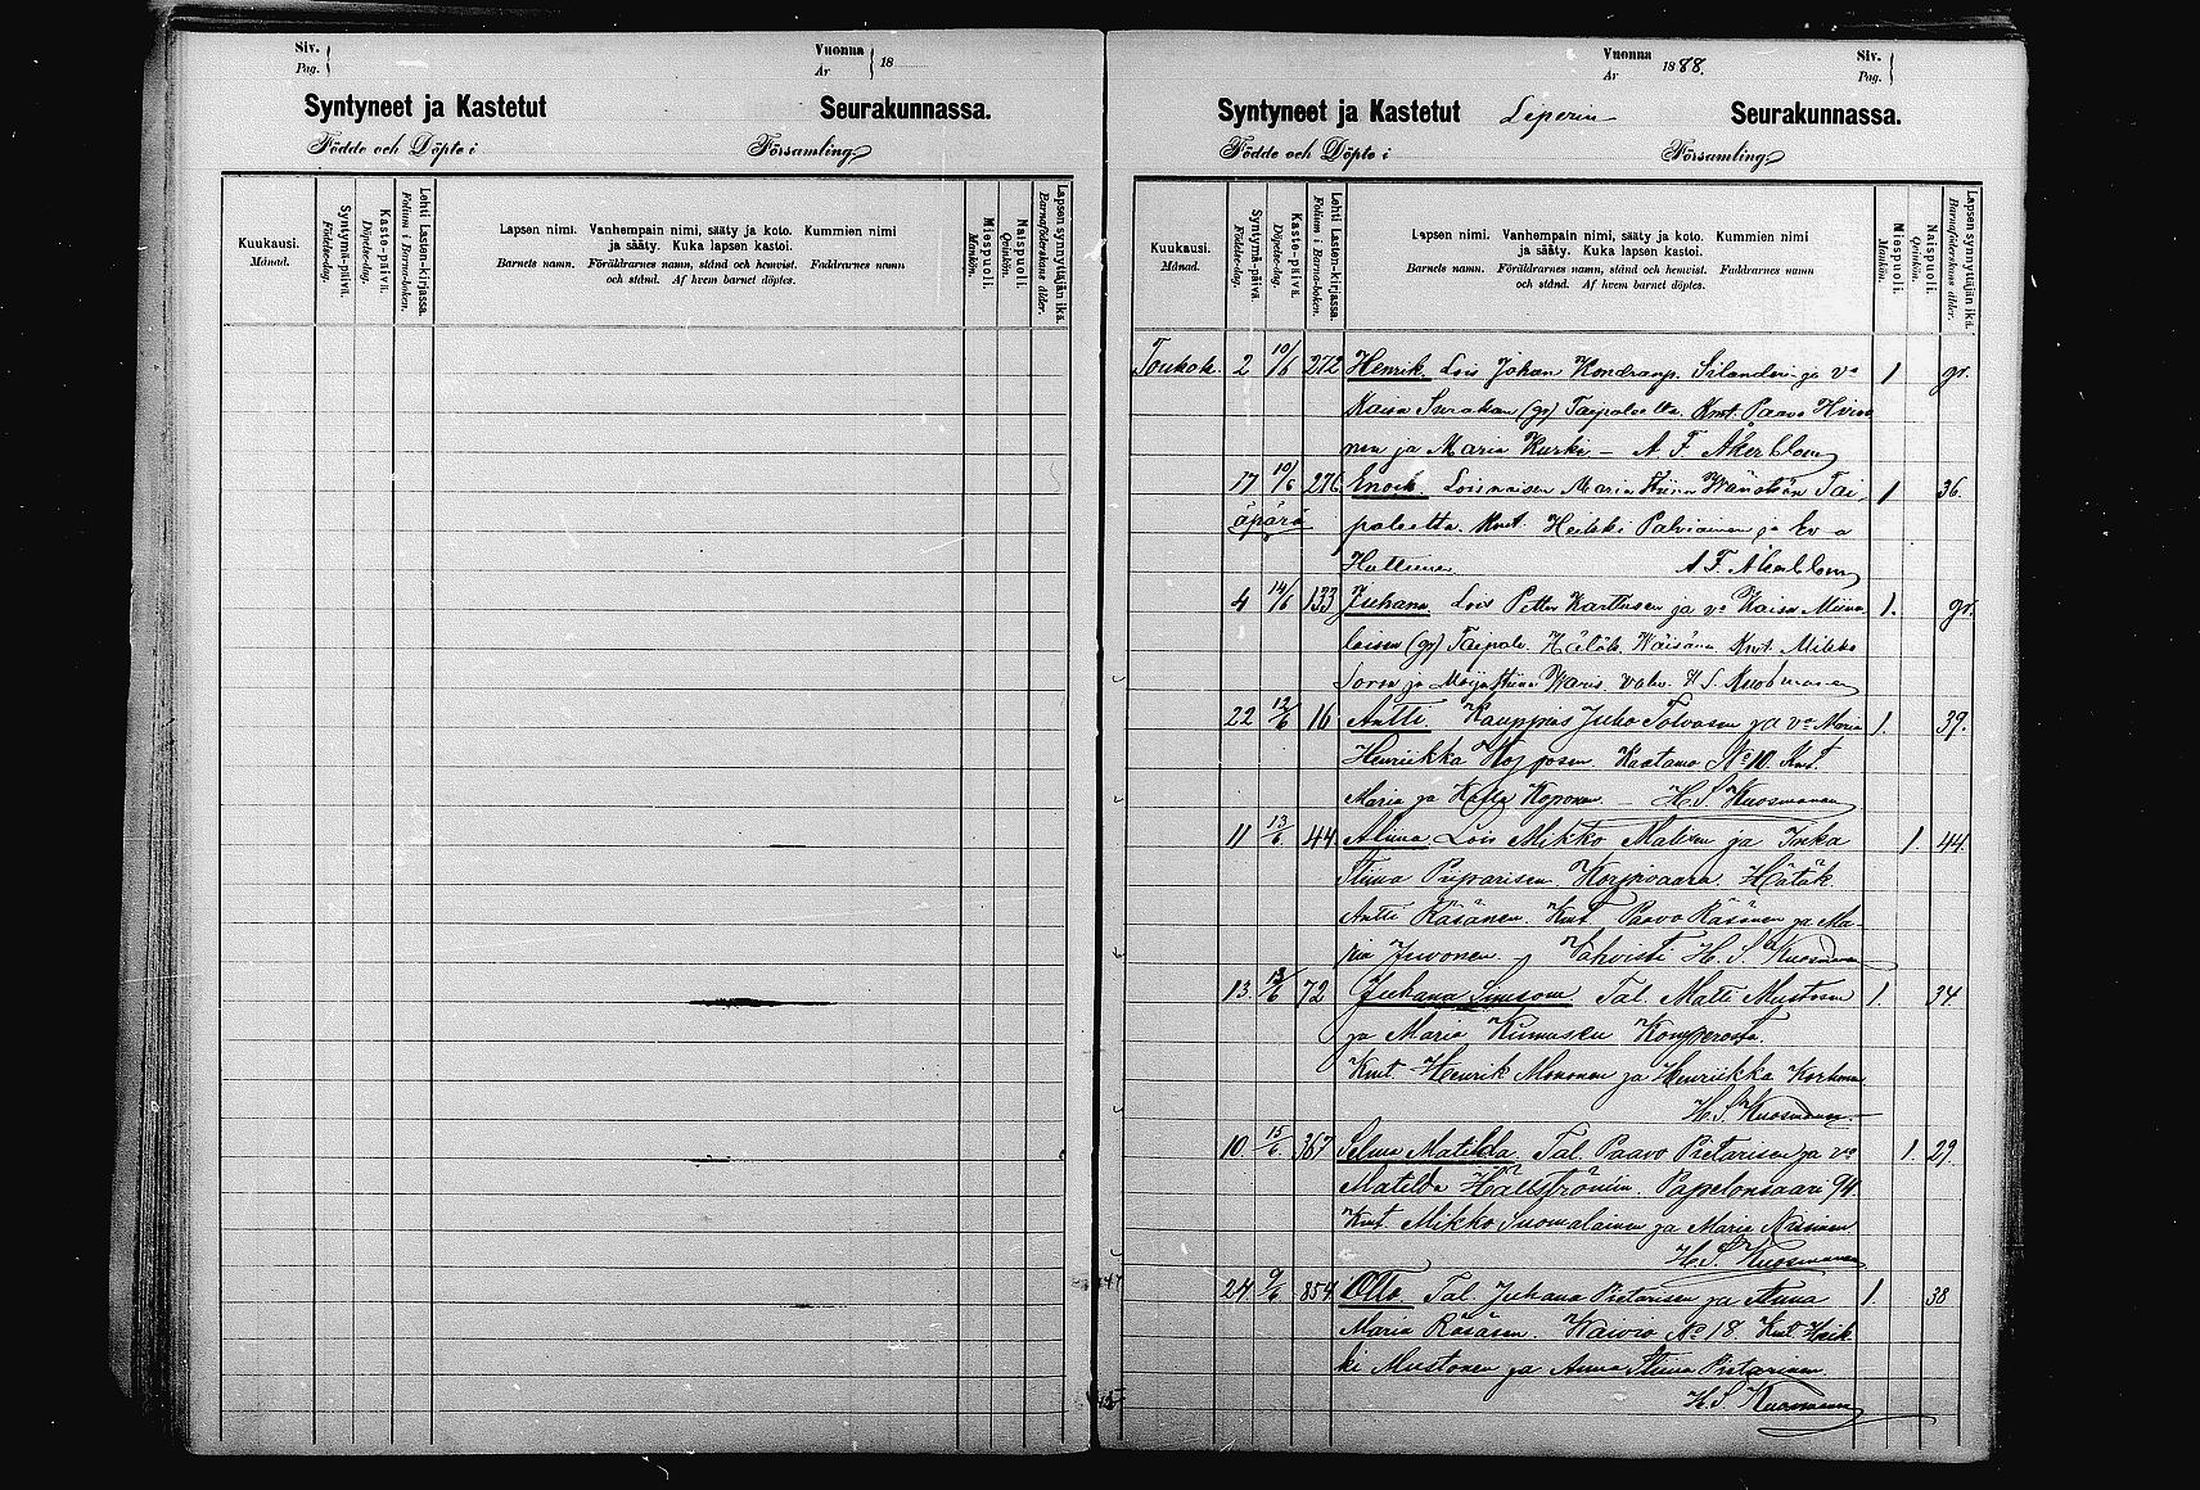 Siv.
Pag.
Vuonna
År
18
Syntyneet ja Kastetut Seurakunnassa.
Födde och Döpte i Församling
Kuukausi.
Månad.
Syntymä-päivä.
Födelse-dag.
Kaste-päivä.
Döpelse-dag.
Lehti Lasten-kirjassa.
Folium i Barna-boken.
Lapsen nimi. Vanhempain nimi, sääty ja koto. Kummien nimi
ja sääty. Kuka lapsen kastoi.
Barnets namn. Föräldrarnes namn, stånd och hemvist. Faddrarnes namn
och stånd. Af hvem barnet döptes.
Miespuoli.
Mankön.
Naispuoli.
Qvinkön.
Lapsen synnyttäjän ikä.
Barnaföderskans ålder.
Vuonna
År
1888.
Siv.
Pag.
Syntyneet ja Kastetut Liperin Seurakunnassa.
Födde och Döpte i Församling
Kuukausi.
Månad.
Syntymä-päivä.
Födelse-dag.
Kaste-päivä.
Döpelse-dag.
Lehti Lasten-kirjassa.
Folium i Barna-boken.
Lapsen nimi. Vanhempain nimi, sääty ja koto. Kummien nimi
ja sääty. Kuka lapsen kastoi.
Barnets namn. Föräldrarnes namn, stånd och hemvist. Faddrarnes namn
och stånd. Af hvem barnet döptes.
Miespuoli.
Mankön.
Naispuoli.
Qvinkön.
Lapsen synnyttäjän ikä.
Barnaföderskans ålder.
Toukok. 2 10/6 272 Henrik. Lois Johan Kondranp. Silanderi ja vo 1 gr.
Kaisa (gr) Taipaleelta. Kmt. Paavo Hirvo
nen ja Maria Kurki – A F Åkerblom
17 10/6 276 Enock. Loisnaisen Maria Stiina Wänskän Tai- 1 36.
äpärä paleelta. Kmt. Heikki Palviainen ja Eva
Huttunen. A. F. Åkerblom
4 14/6 133 Juhana. Lois Petter Karttusen ja vo Kaisa Miina 1. gr.
laisen (gr) Taipale. Hätäk. Wäisänen Kmt. Mikko
Sorsa ja Maija Stiina Waris. Vahv. H S. Kuosmanen
22 12/6 16 Antti. Kauppias Juho Tolvasen ja vo Maria 1. 39.
Henriikka Kopposen. Kaatamo No 10. Kmt.
Maria ja Koponen. – H. S. Kuosmanen
11 13/6 44 Aliina. Lois Mikko Malisen ja Inka 1. 44.
Stiina Piiparisen. Korpivaara. Hätäk.
Antti Räsänen. Kmt. Paavo Räsänen ja Ma-
ria Juvonen. – Vahvisti H. S. Kuosmanen
13. 13/6 72 Juhana Simson. Tal. Matti Mustosen 1. 34.
ja Maria Kinnusen Komperosta.
Kmt. Henrik Mononen ja Henriikka Korhonen
H. S. Kuosmanen.
10. 15/6 367 Selma Matilda. Tal. Paavo Pietarisen ja vo 1. 29.
Matilda Hällströmin. Papelonsaari 94.
Kmt. Mikko Suomalainen ja Maria Nissinen.
H. S. Kuosmanen
24. 9/6 854 Otto Tal. Juhana Pietarisen ja Anna 1. 38
Maria Räsäsen. Kaivio No 18. Kmt. Heik-
ki Mustonen ja Anna Stiina Pietarinen.
H. S. Kuosmanen